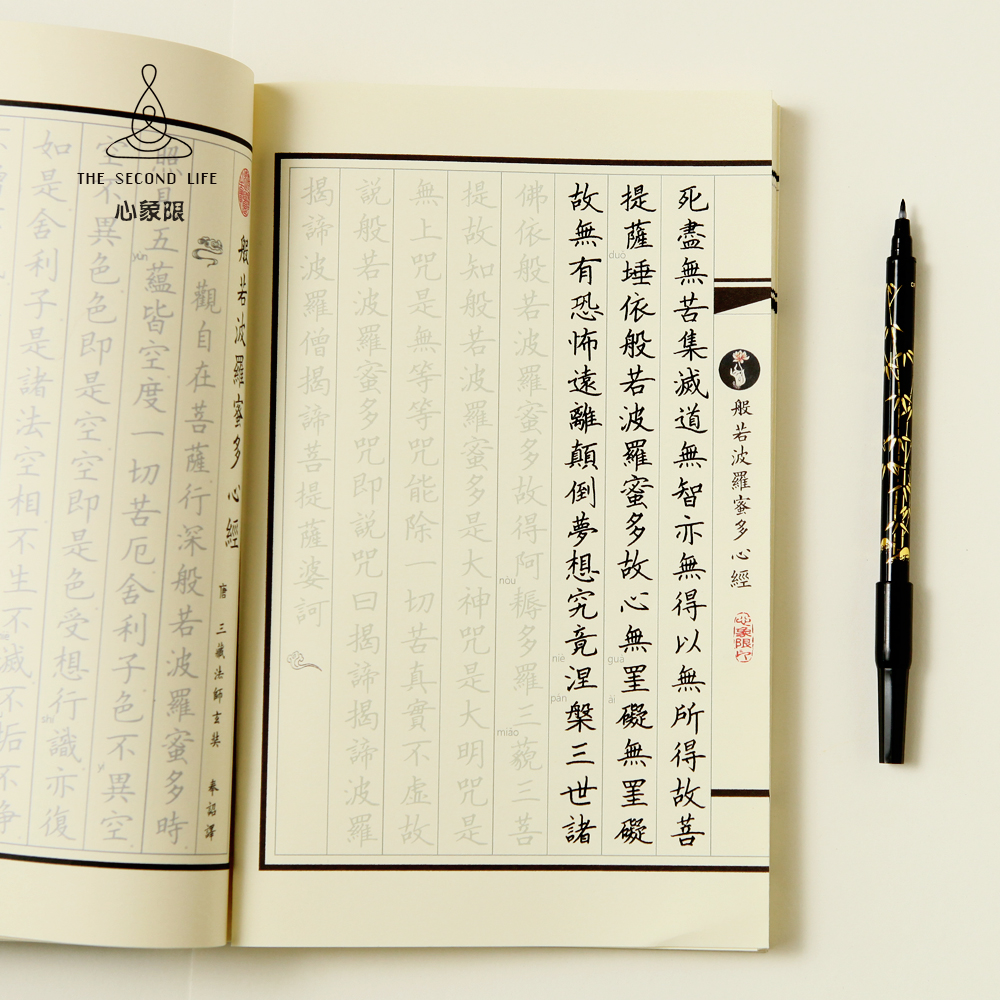 THE SECOND LIFE
心象限
般若波羅蜜多心經
唐 三藏法師玄奘 奉詔譯
觀自在菩薩行深般若波羅蜜多時
照見五蘊皆空度一切苦厄舍利子色不異空
空不異色色即是空空即是色受想行識亦復
如是舍利子是諸法空相不生不滅不垢不淨
般若波羅蜜多心經
心象限
死盡無苦集滅道無智亦無得以無所得故菩
提薩埵依般若波羅蜜多故心無罣礙無罣礙
duǒ
guà
ài
故無有恐怖遠離顛倒夢想究竟涅槃三世諸
niè
pán
佛依般若波羅蜜多故得阿耨多羅三藐三菩
nòu
miǎo
提故知般若波羅蜜多是大神咒是大明咒是
無上咒是無等等咒能除一切苦真實不虛故
說般若波羅蜜多咒即說咒曰揭諦揭諦波羅
揭諦波羅僧揭諦菩提薩婆訶